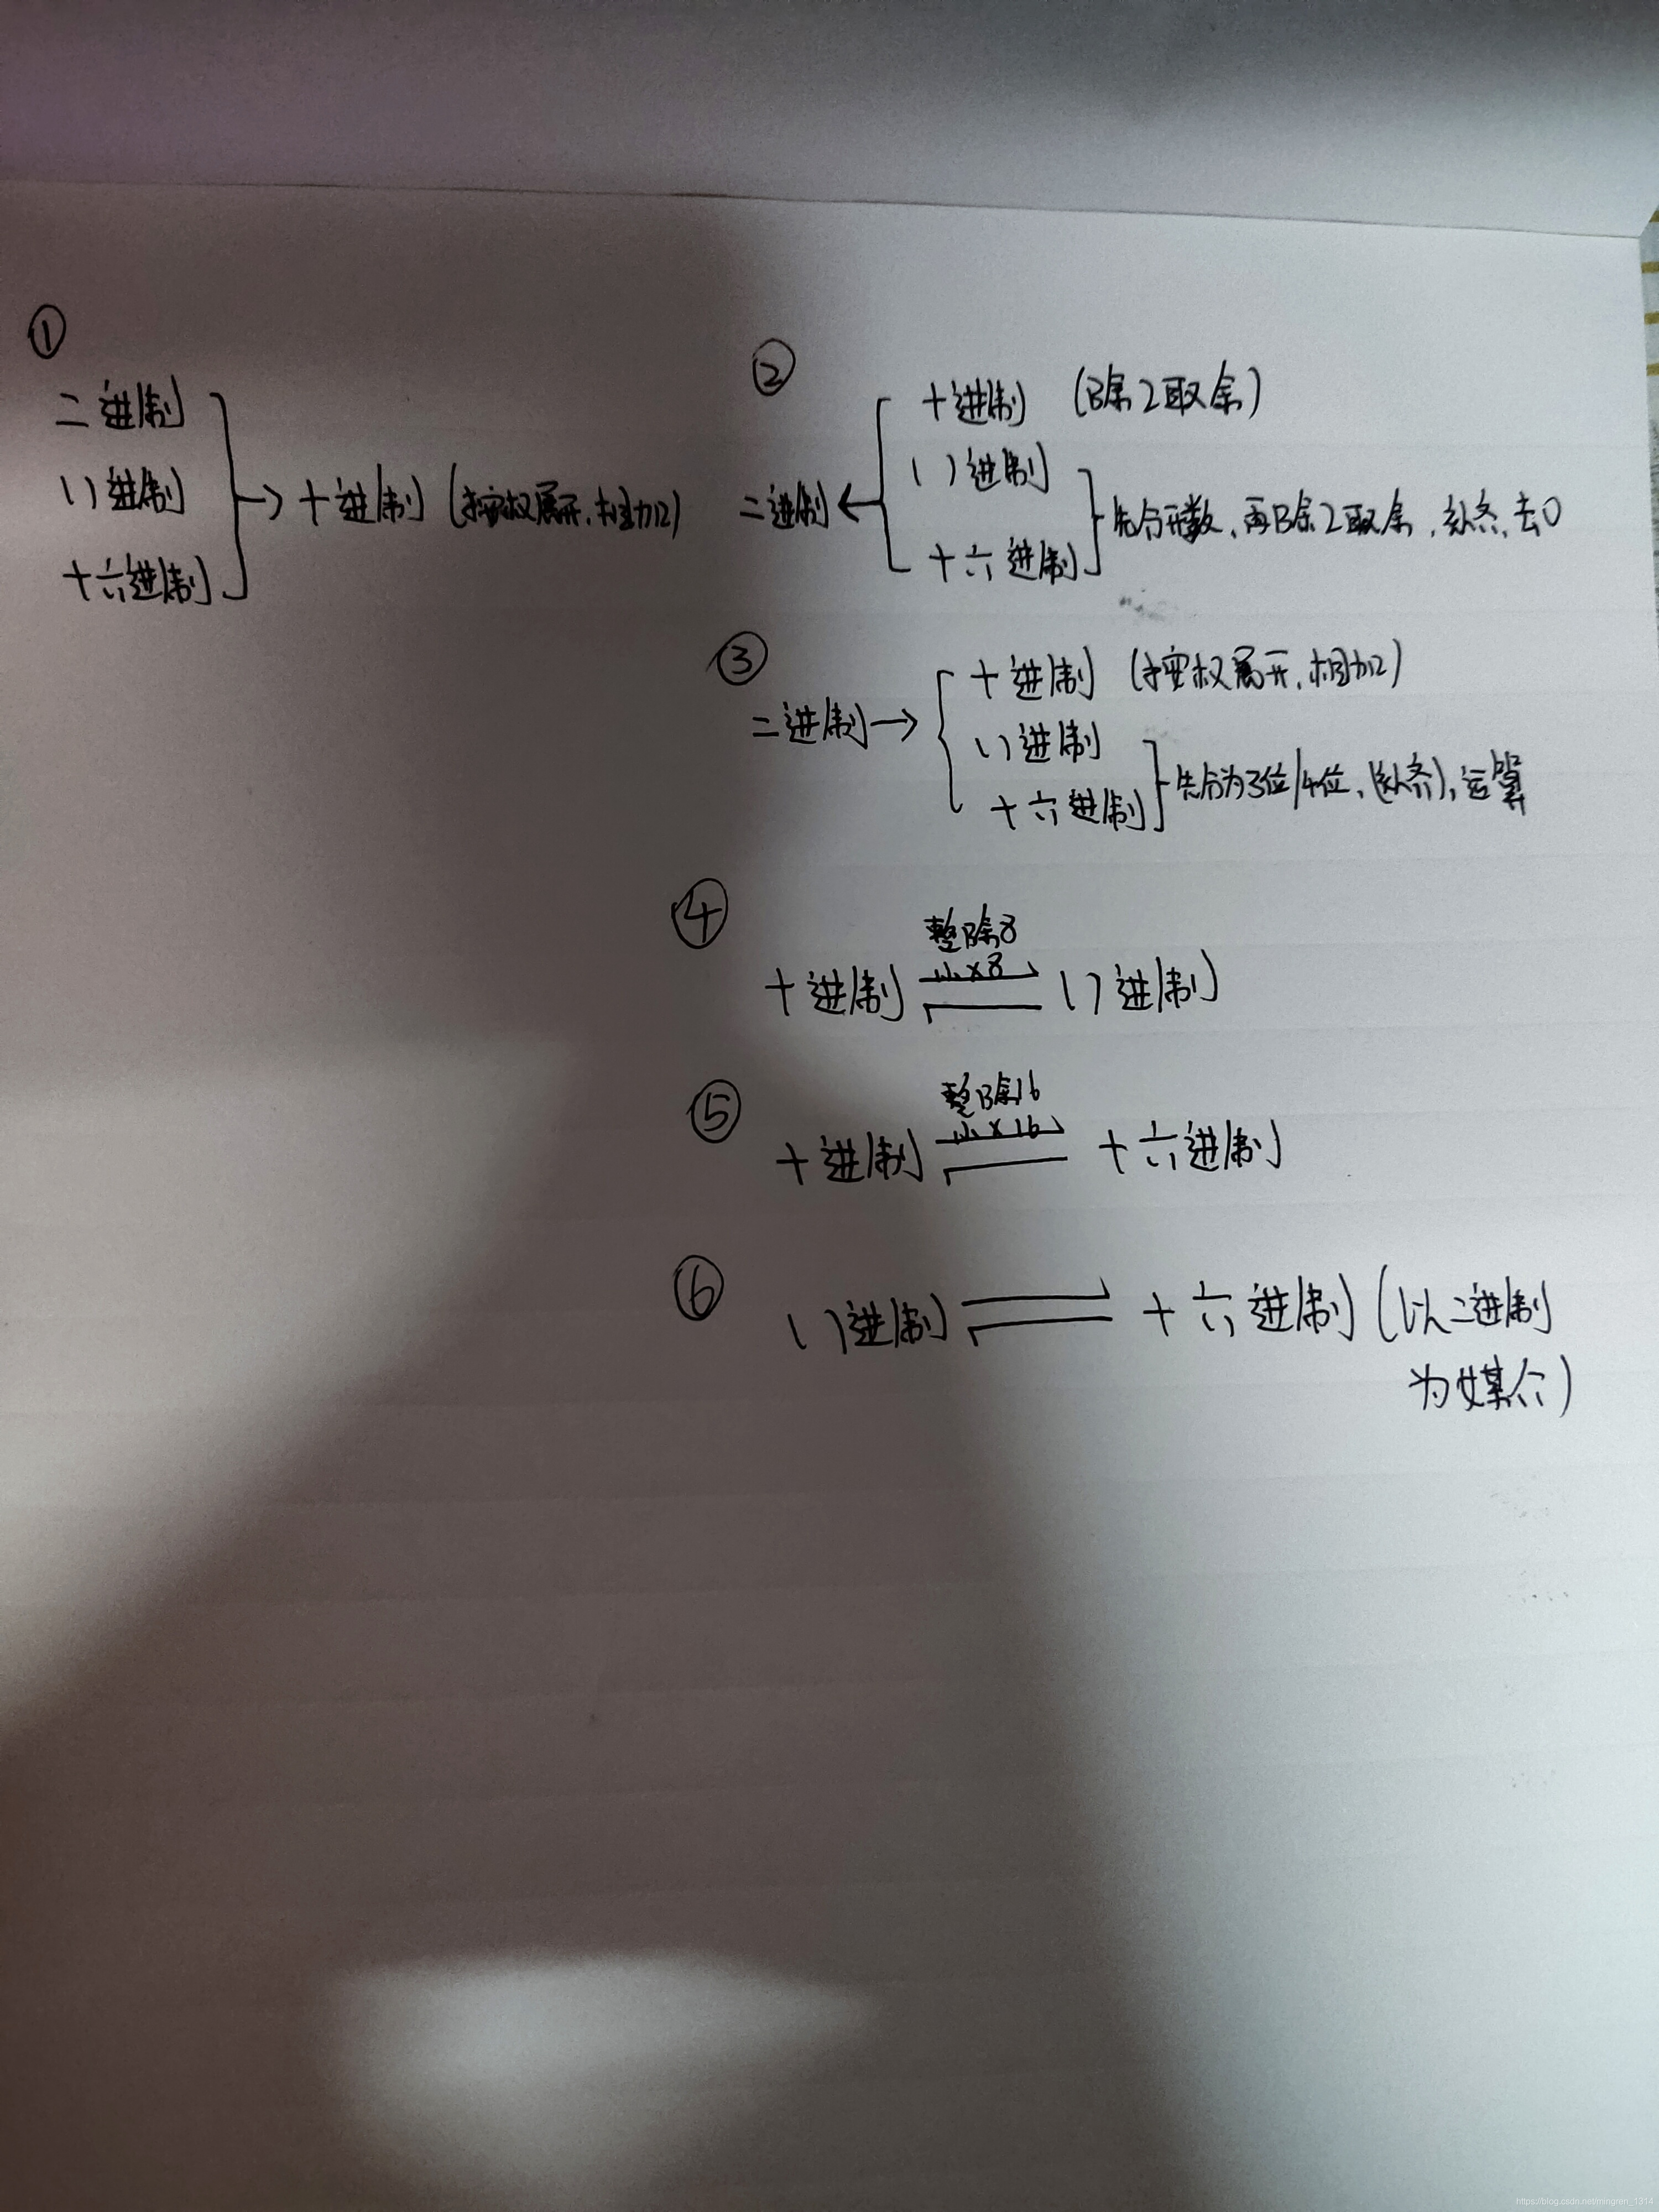 ①
二进制
八进制 → 十进制 (按权展开,相加)
十六进制
②
十进制 (除2取余)
八进制
二进制 ← 先分开数,再除2取余,补齐,去0
十六进制
③
十进制 (按权展开,相加)
二进制 → 八进制
先分为3位/4位,(补齐),运算
十六进制
④
整除8
小×8
十进制 ⇌ 八进制
⑤
整除16
小×16
十进制 ⇌ 十六进制
⑥
八进制 ⇌ 十六进制 (以二进制
为媒介)
https://blog.csdn.net/mingren_1314